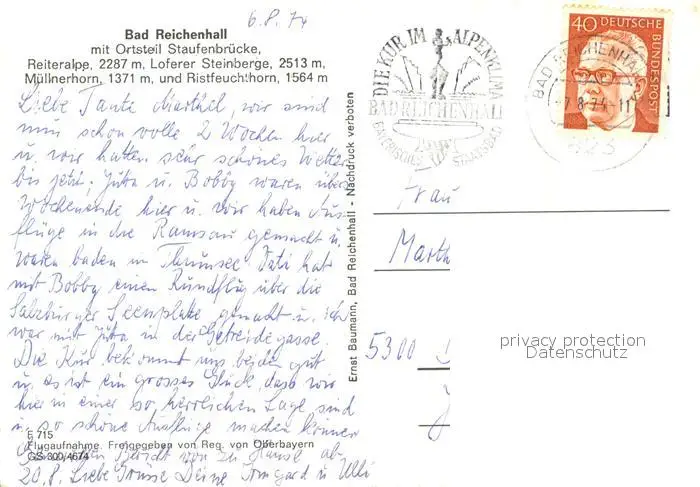 6.8.74
Bad Reichenhall
mit Ortsteil Staufenbrücke,
Reiteralpe, 2287 m, Loferer Steinberge, 2513 m,
Müllnerhorn, 1371 m, und Ristfeuchthorn, 1564 m
Liebe Tante Marthel, wir sind
nun schon volle 2 Wochen hier
u. wir hatten sehr schönes Wetter
bis jetzt. Jutta u. Bobby waren über
Wochenende hier u. wir haben Aus-
flüge in die Ramsau gemacht u.
waren baden im Thumsee. Tati hat
mit Bobby einen Rundflug über die
Salzburger Seenplatte gemacht u. ich
war mit Jutta in der Getreidegasse.
Die Kur bekommt uns beiden gut
u. es ist ein grosses Glück, dass wir
hier in einer so herrlichen Lage sind
u. so schöne Ausflüge machen können
E 715
Flugaufnahme. Freigegeben von Reg. von Oberbayern
GS 300/4674
Bericht von zu Hause ab
20.8. Liebe Grüsse Deine Irmgard u. Ulli
Ernst Baumann, Bad Reichenhall - Nachdruck verboten
DIE KUR IM ALPENKLIMA
BAD REICHENHALL
BAYERISCHES STAATSBAD
BAD REICHENHALL
-7.8.74-11
823
40 DEUTSCHE BUNDESPOST
Frau
Marth
5300
privacy protection
Datenschutz